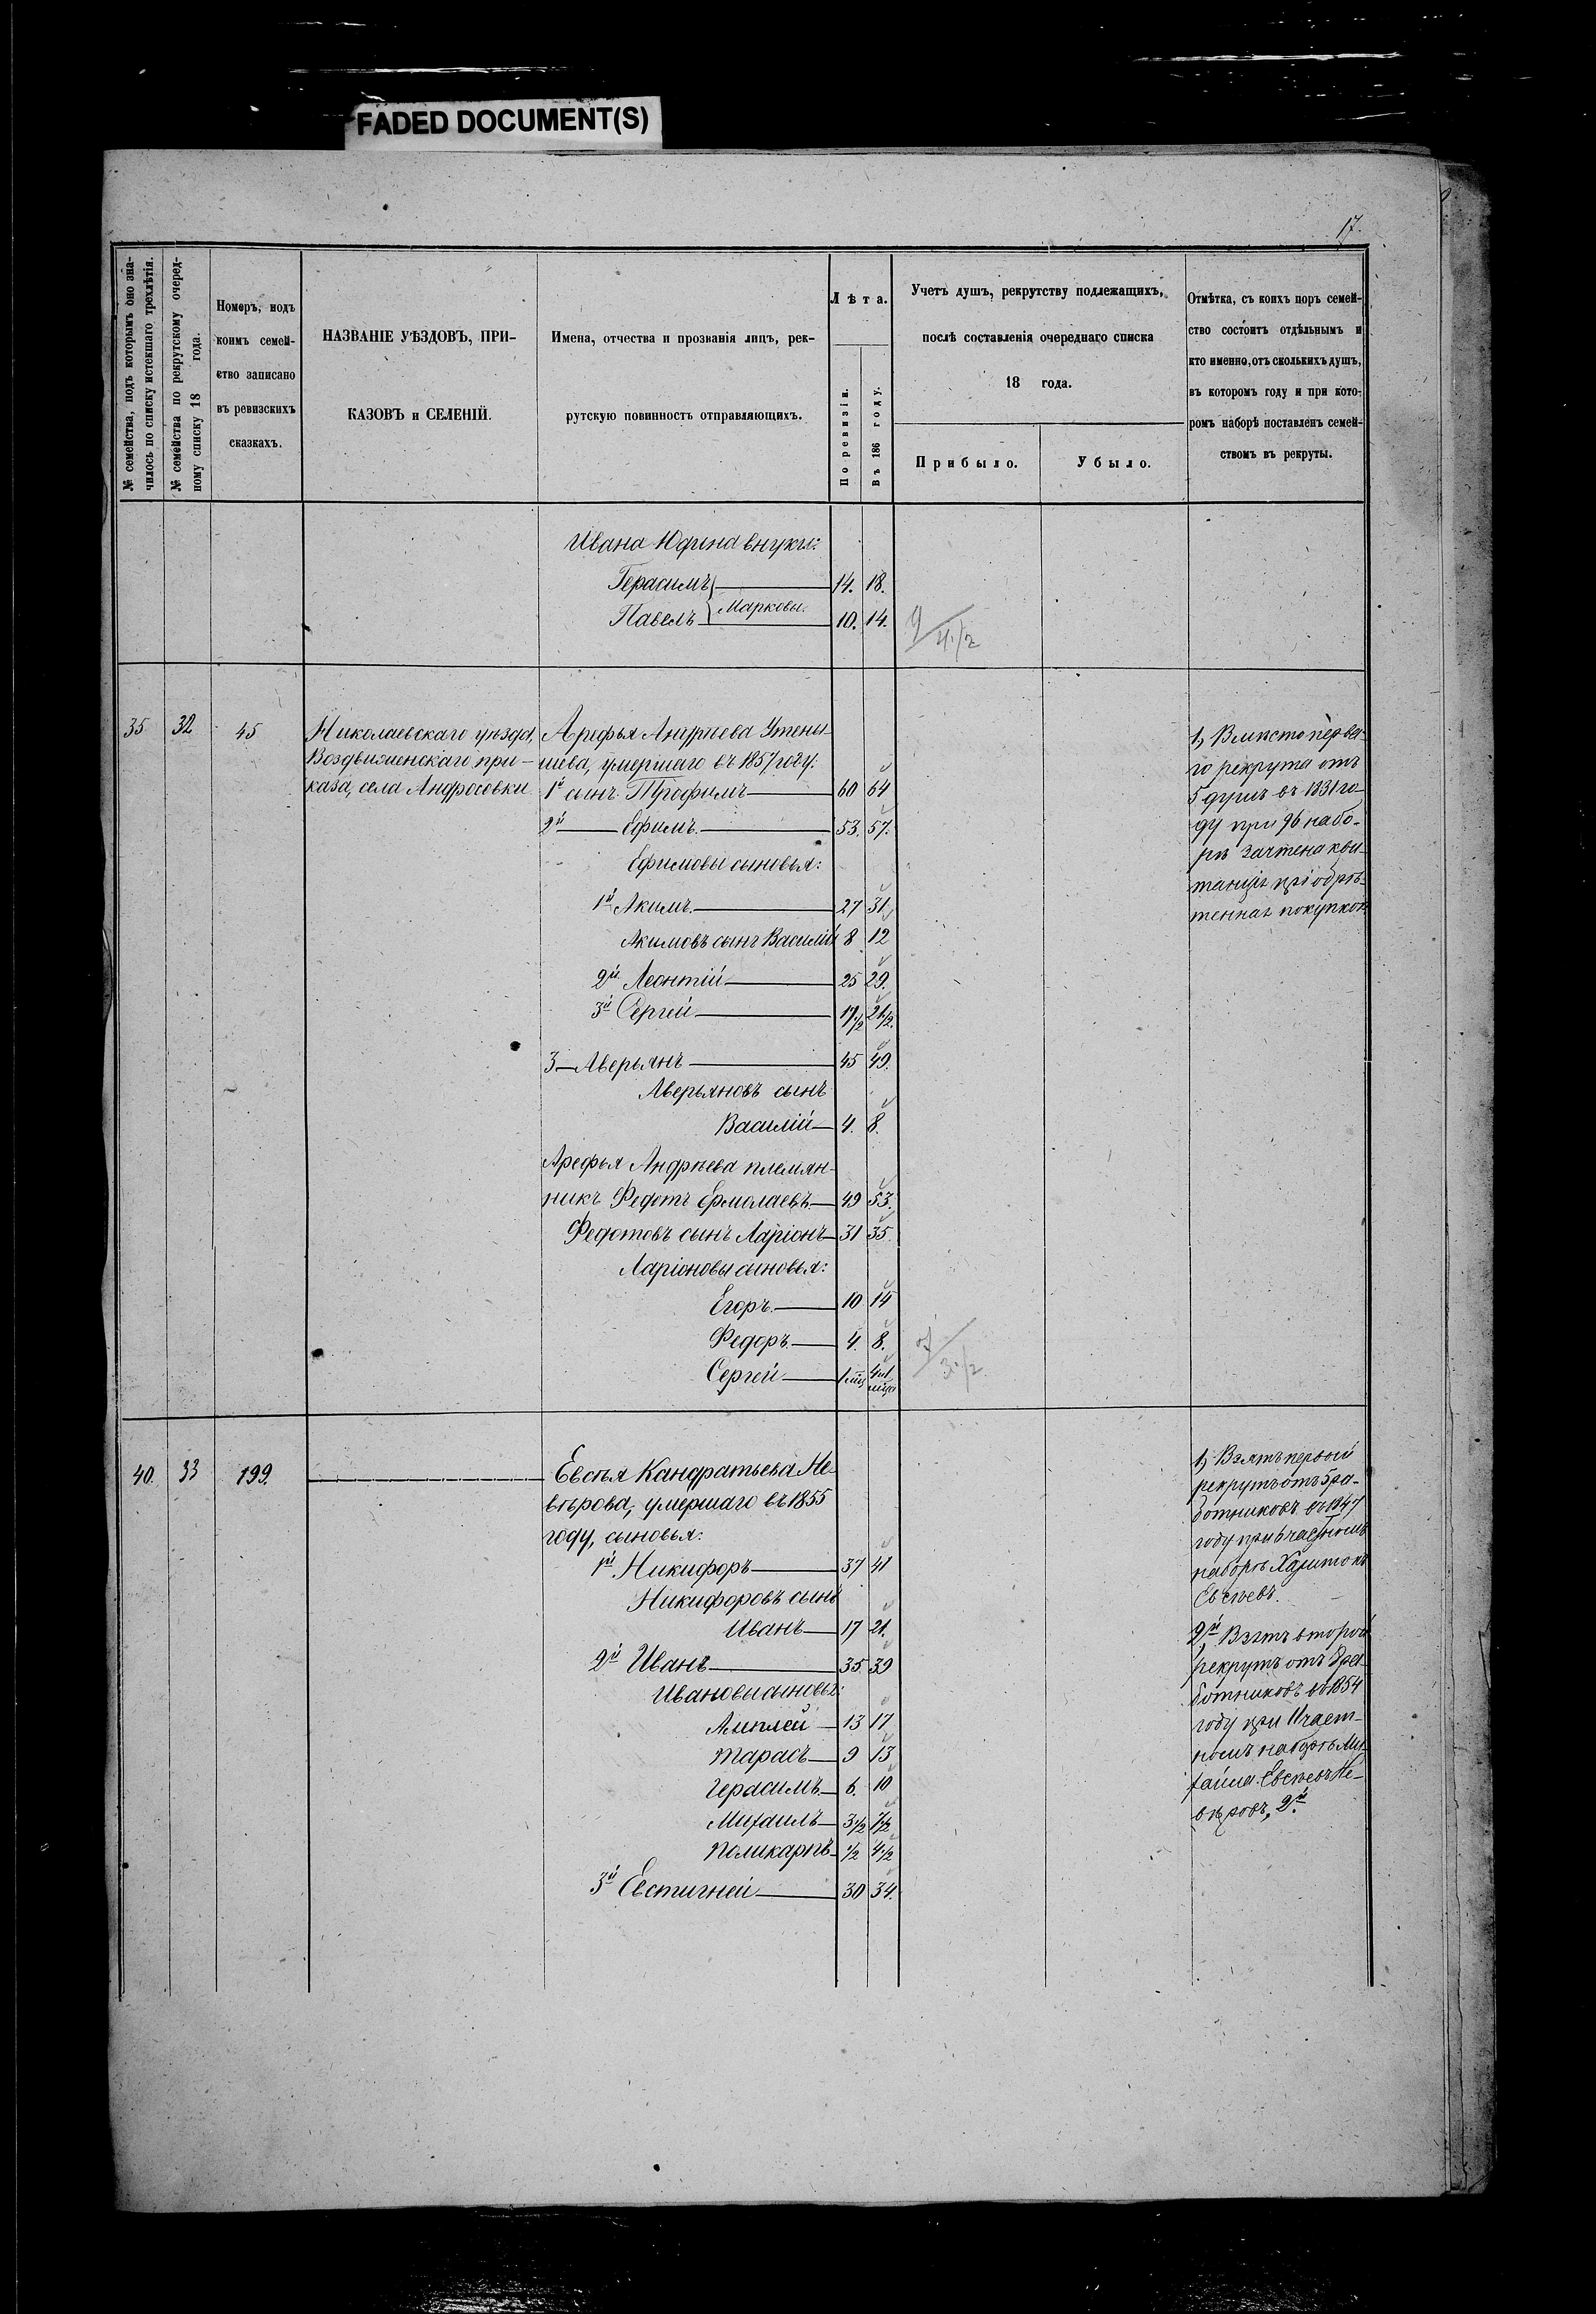 FADED DOCUMENT(S)
17.
№ семейства, подъ которымъ оно зна-
чилось по списку истекшаго трехлѣтія.
№ семейства по рекрутскому очеред-
ному списку 18 года.
Номеръ, подъ
коимъ семей-
ство записано
въ ревизскихъ
сказкахъ.
НАЗВАНІЕ УѢЗДОВЪ, ПРИ-
КАЗОВЪ и СЕЛЕНІЙ.
Имена, отчества и прозванія лицъ, рек-
рутскую повинность отправляющихъ.
Лѣта.
По ревизіи.
Въ 186 году.
Учетъ душъ, рекрутству подлежащихъ,
послѣ составленія очереднаго списка
18 года.
Прибыло.
Убыло.
Отмѣтка, съ коихъ поръ семей-
ство состоитъ отдѣльнымъ и
кто именно, отъ сколькихъ душъ,
въ которомъ году и при кото-
ромъ наборѣ поставленъ семей-
ствомъ въ рекруты.
Ивана Юдина внуки:
Герасимъ 14. 18.
Марковы.
Павелъ 10. 14.
9/4 1/2
35 32 45
Николаевскаго уѣзда,
Воздвиженскаго при-
каза, села Андросовки
Арефья Андрѣева Утены-
шева, умершаго въ 1857 году:
1й сынъ Трофимъ 60 64
2й Ефимъ. 53. 57.
Ефимовы сыновья:
1й Акимъ. 27 31
Акимовъ сынъ Василій 8 12
2й Леонтій 25 29.
3й Сергей 17 1/2 21 1/2.
3 Аверьянъ 45 49.
Аверьяновъ сынъ
Василій 4. 8.
Арефья Андрѣева племян-
никъ Федотъ Ермолаевъ 49 53.
Федотовъ сынъ Ларіонъ 31 35.
Ларіоновы сыновья:
Егоръ. 10 14
Федоръ. 4. 8.
Сергей
3 1/2
1, Вмѣсто перва-
го рекрута отъ
5 душъ въ 1831 го-
ду при 96 набо-
рѣ зачтена кви-
танція пріобрѣ-
тенная покупкою
40. 33 199.
Евсѣя Кандратьева Не-
вѣрова, умершаго въ 1855
году, сыновья:
1й Никифоръ 37 41
Никифоровъ сынъ
Иванъ 17 21.
2й Иванъ 35 39
Ивановы сыновья:
13 17
Тарасъ 9 13
Герасимъ 6. 10
Михаилъ 3 1/2 7 1/2
Поликарпъ 1/2 4 1/2
3й Евстигней 30 34.
1, Взятъ первой
рекрутъ отъ 5 ра-
ботниковъ въ 1847
году при 6 частномъ
наборѣ Харитонъ
Евсѣевъ.
2й Взятъ второй
рекрутъ отъ
ботниковъ въ 1854
году при 11 част-
номъ наборѣ Ми-
хайла Евсѣевъ Не-
вѣровъ, 2й.